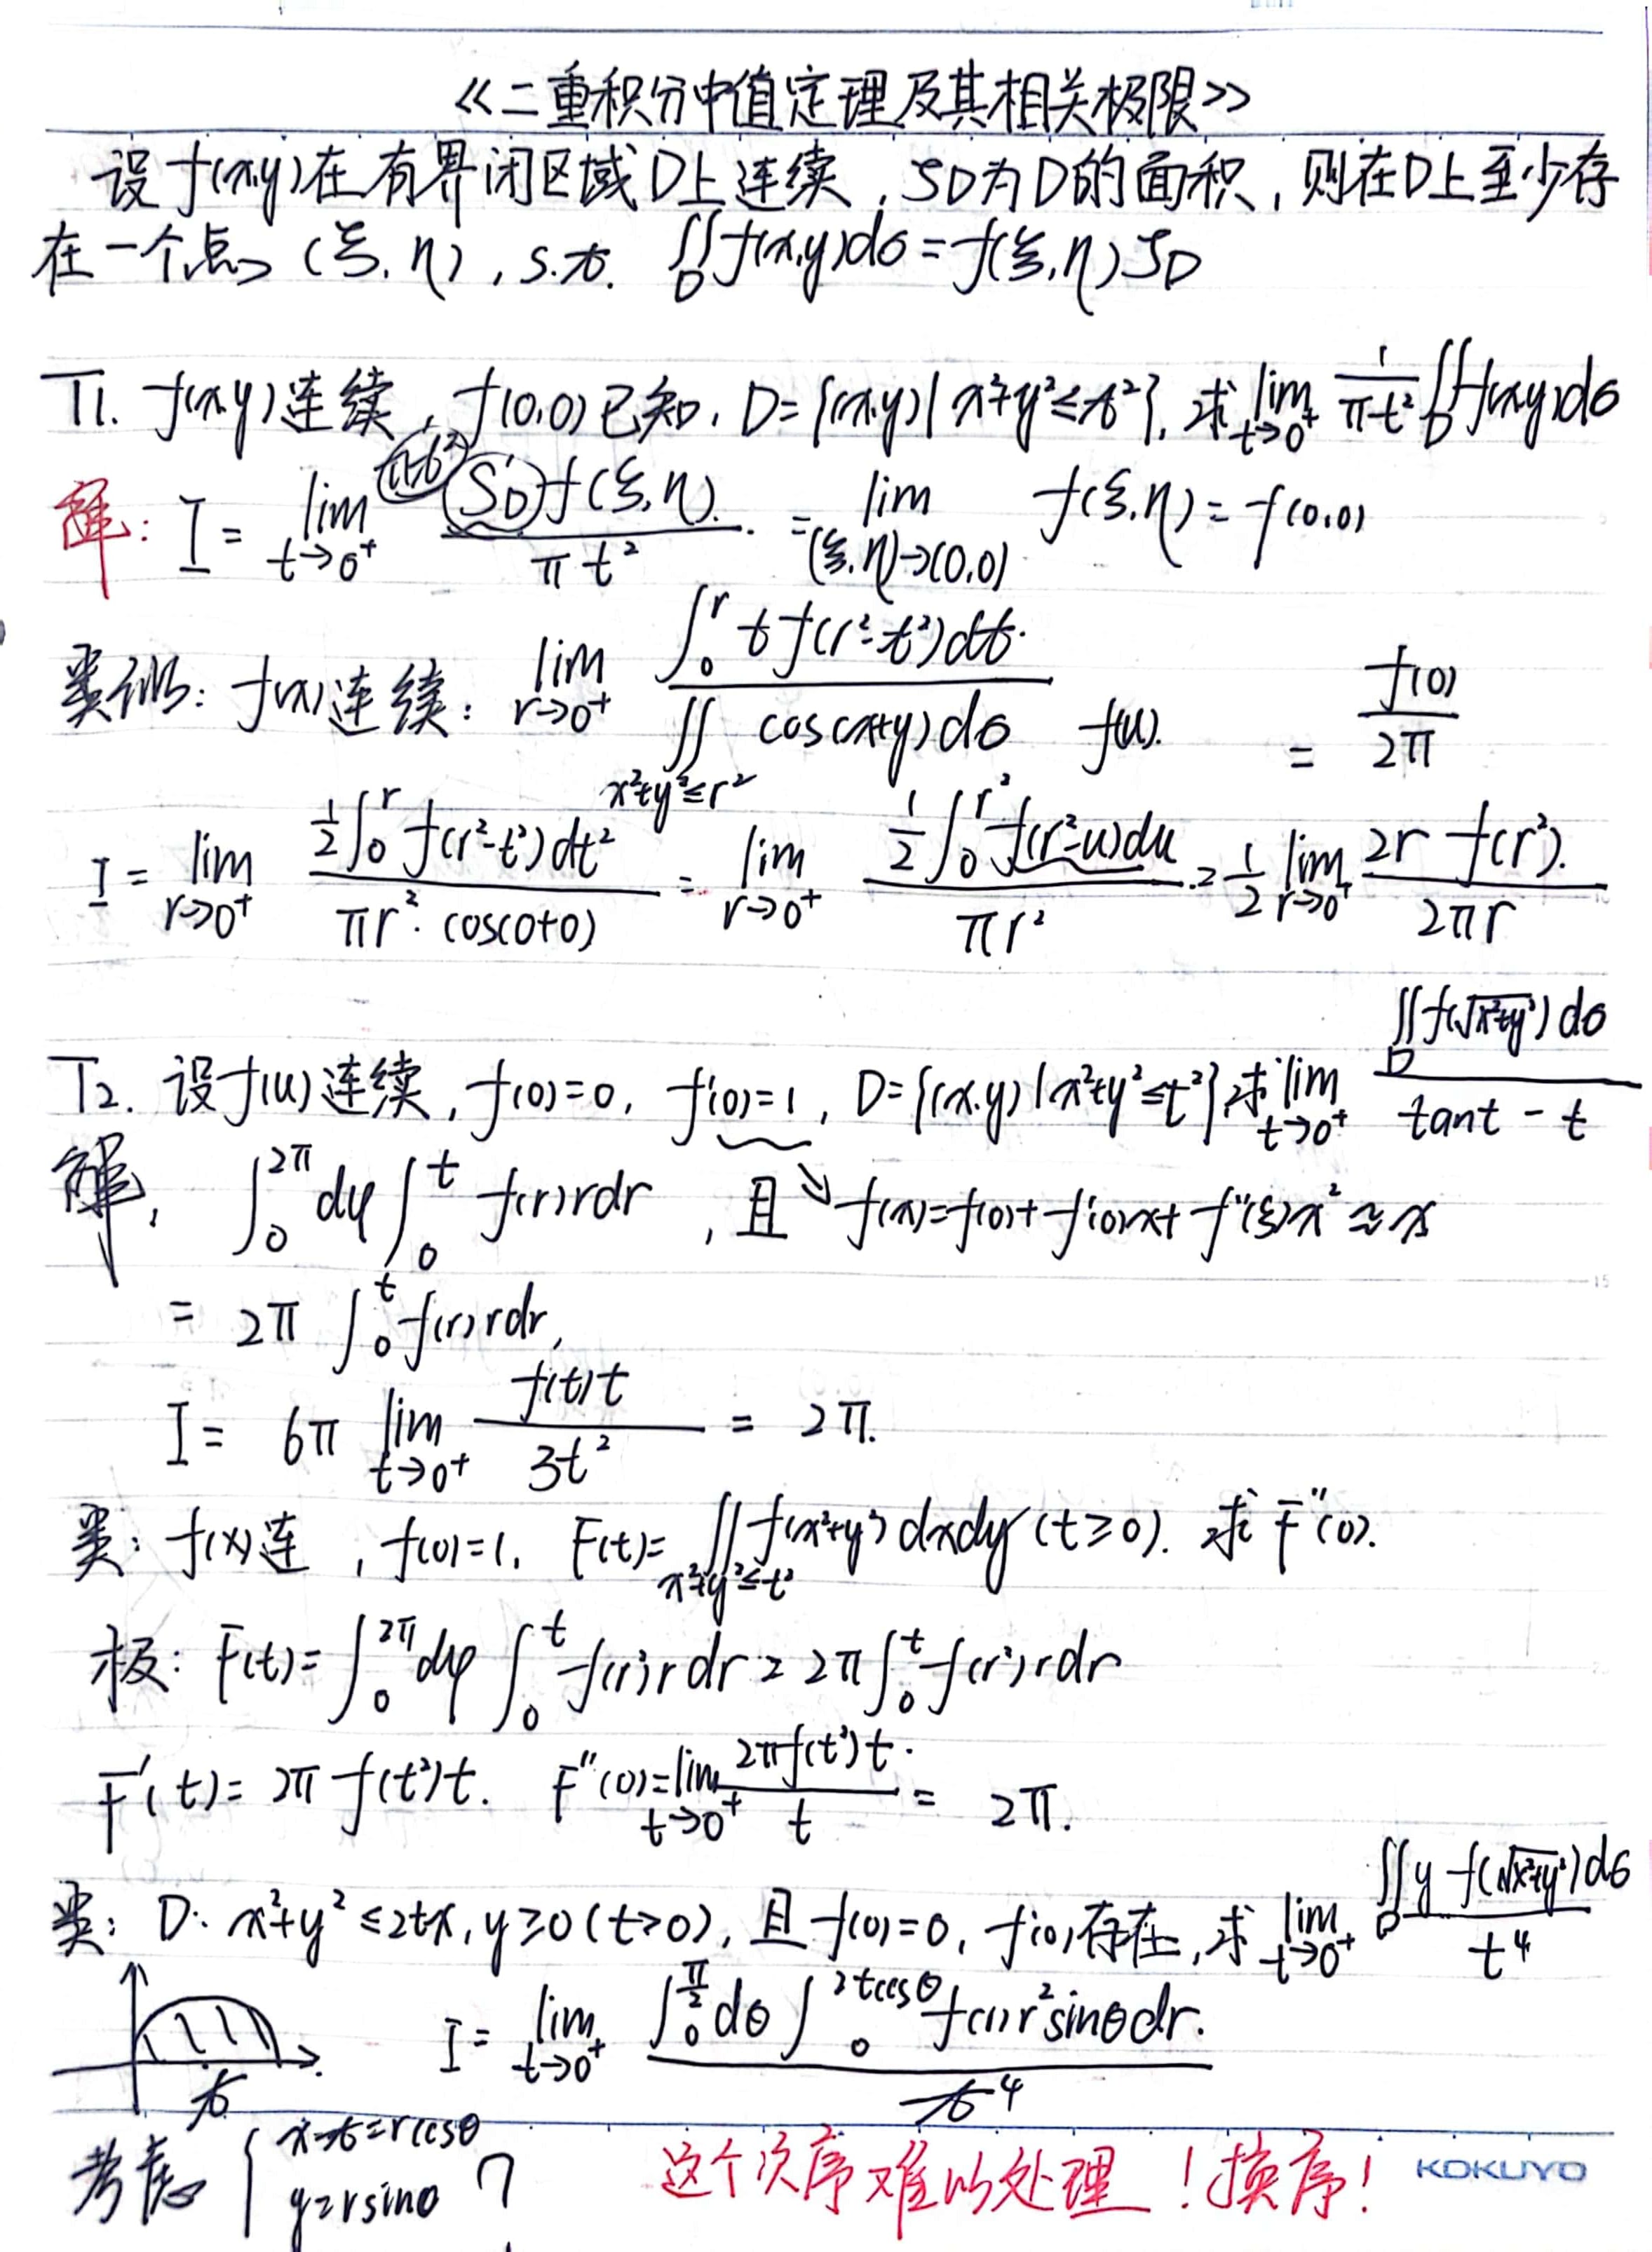 《二重积分中值定理及其相关极限》
设f(x,y)在有界闭区域D上连续，SD为D的面积，则在D上至少存
在一个点(ξ,η), s.t. ∬_D f(x,y)dσ = f(ξ,η)SD
T1. f(x,y)连续，f(0,0)已知，D={(x,y)|x²+y²≤t²}, 求lim_{t→0⁺} 1/(πt²) ∬_D f(x,y)dσ
解: I = lim_{t→0⁺} (SD)f(ξ,η)/(πt²) = lim_{(ξ,η)→(0,0)} f(ξ,η) = f(0,0)
(πt²)
类似: f(x)连续: lim_{r→0⁺} ∫_0^r t f(r²-t²)dt / ∬_{x²+y²≤r²} cos(x+y)dσ f(u). = f(0)/2π
I = lim_{r→0⁺} ½∫_0^r f(r²-t²)dt² / (πr²·cos(0+0)) = lim_{r→0⁺} ½∫_0^{r²} f(r²-u)du / (πr²) = ½ lim_{r→0⁺} 2r f(r²) / (2πr)
T2. 设f(u)连续, f(0)=0, f'(0)=1, D={(x,y)|x²+y²≤t²}, 求lim_{t→0⁺} ∬_D f(√(x²+y²))dσ / (tant - t)
解, ∫_0^{2π} dφ ∫_0^t f(r)rdr , 且 ↘ f(x)=f(0)+f'(0)x+f''(ξ)x² ≈ x
= 2π ∫_0^t f(r)rdr,
I = 6π lim_{t→0⁺} f(t)t / (3t²) = 2π.
类: f(x)连 , f(0)=1, F(t)=∬_{x²+y²≤t²} f(x²+y²)dxdy (t≥0). 求F''(0).
极: F(t)=∫_0^{2π} dφ ∫_0^t f(r²)rdr = 2π∫_0^t f(r²)rdr
F'(t)=2πf(t²)t. F''(0)=lim_{t→0⁺} 2πf(t²)t / t = 2π.
类: D: x²+y²≤2tx, y≥0 (t>0), 且f(0)=0, f'(0)存在, 求lim_{t→0⁺} ∬_D y f(√(x²+y²))dσ / t⁴
t
I = lim_{t→0⁺} ∫_0^{π/2} dθ ∫_0^{2tcosθ} f(r)r²sinθdr. / t⁴
考虑 { x-t=rcosθ
y=rsinθ ?
这个次序难以处理！换序！
KOKUYO